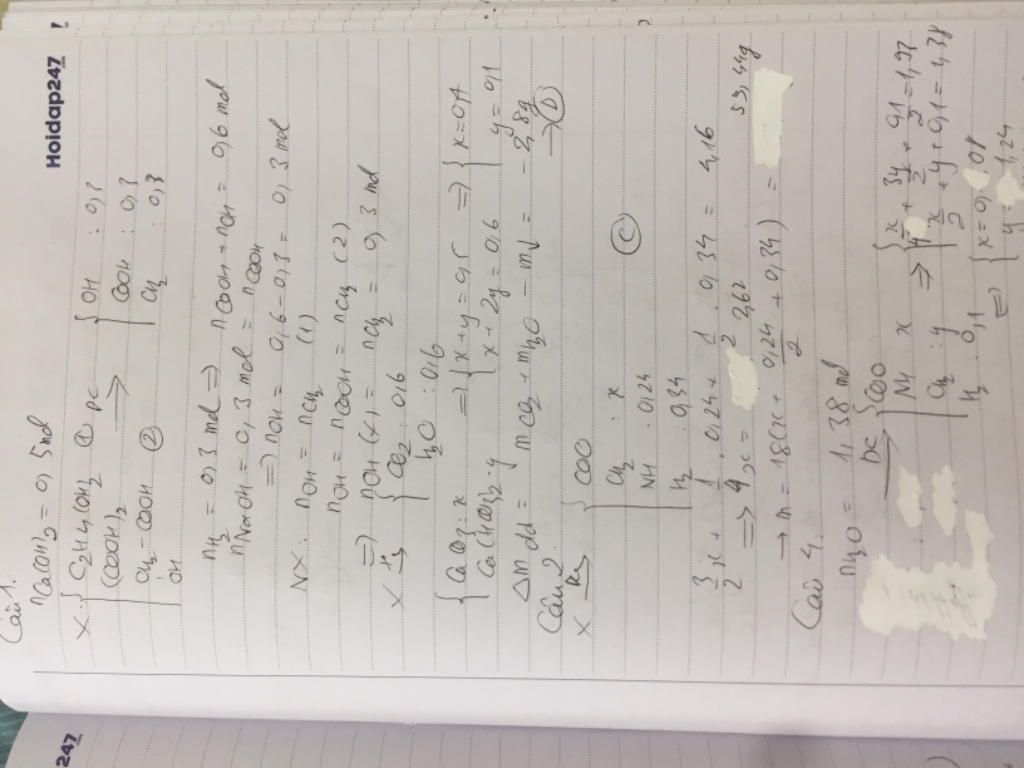 Hoidap247!
Câu 1.
nCa(OH)2 = 0,5 mol
X: { C2H4(OH)2 ① ĐC { OH : 0,3
(COOH)2 → COOH : 0,3
CH2-COOH ② CH2 : 0,3
OH
nH2 = 0,3 mol ⇒ nCOOH + nOH = 0,6 mol
nNaOH = 0,3 mol = nCOOH
⇒ nOH = 0,6 - 0,3 = 0,3 mol
NX: nOH = nCH2 (1)
nOH = nCOOH = nCH2 (2)
⇒ nOH(X) = nCH2 = 0,3 mol
X → { CO2 : 0,6
H2O : 0,6
{ CaCO3 : x ⇒ { x + y = 0,5 ⇒ { x = 0,4
Ca(HCO3)2 : y x + 2y = 0,6 y = 0,1
Δm dd = mCO2 + mH2O - m↓ = - 2,8g
→ Ⓓ
Câu 2.
X → { COO
CH2 : x
NH : 0,24 Ⓒ
H2 : 0,34
3/2 x + 1/4 . 0,24 + 1/2 . 0,34 = 4,16
⇒ x = 2,62
→ m = 18(x + 0,24/2 + 0,34) = 55,44g
Câu 4.
nH2O = 1,38 mol
ĐC → { COO
NH x
CH2 : y
H2 : 0,1
⇒ { x/4 + 3y/2 + 0,1/2 = 1,97
x/2 + y + 0,1 = 1,38
⇔ { x = 0,08
y = 1,24
247